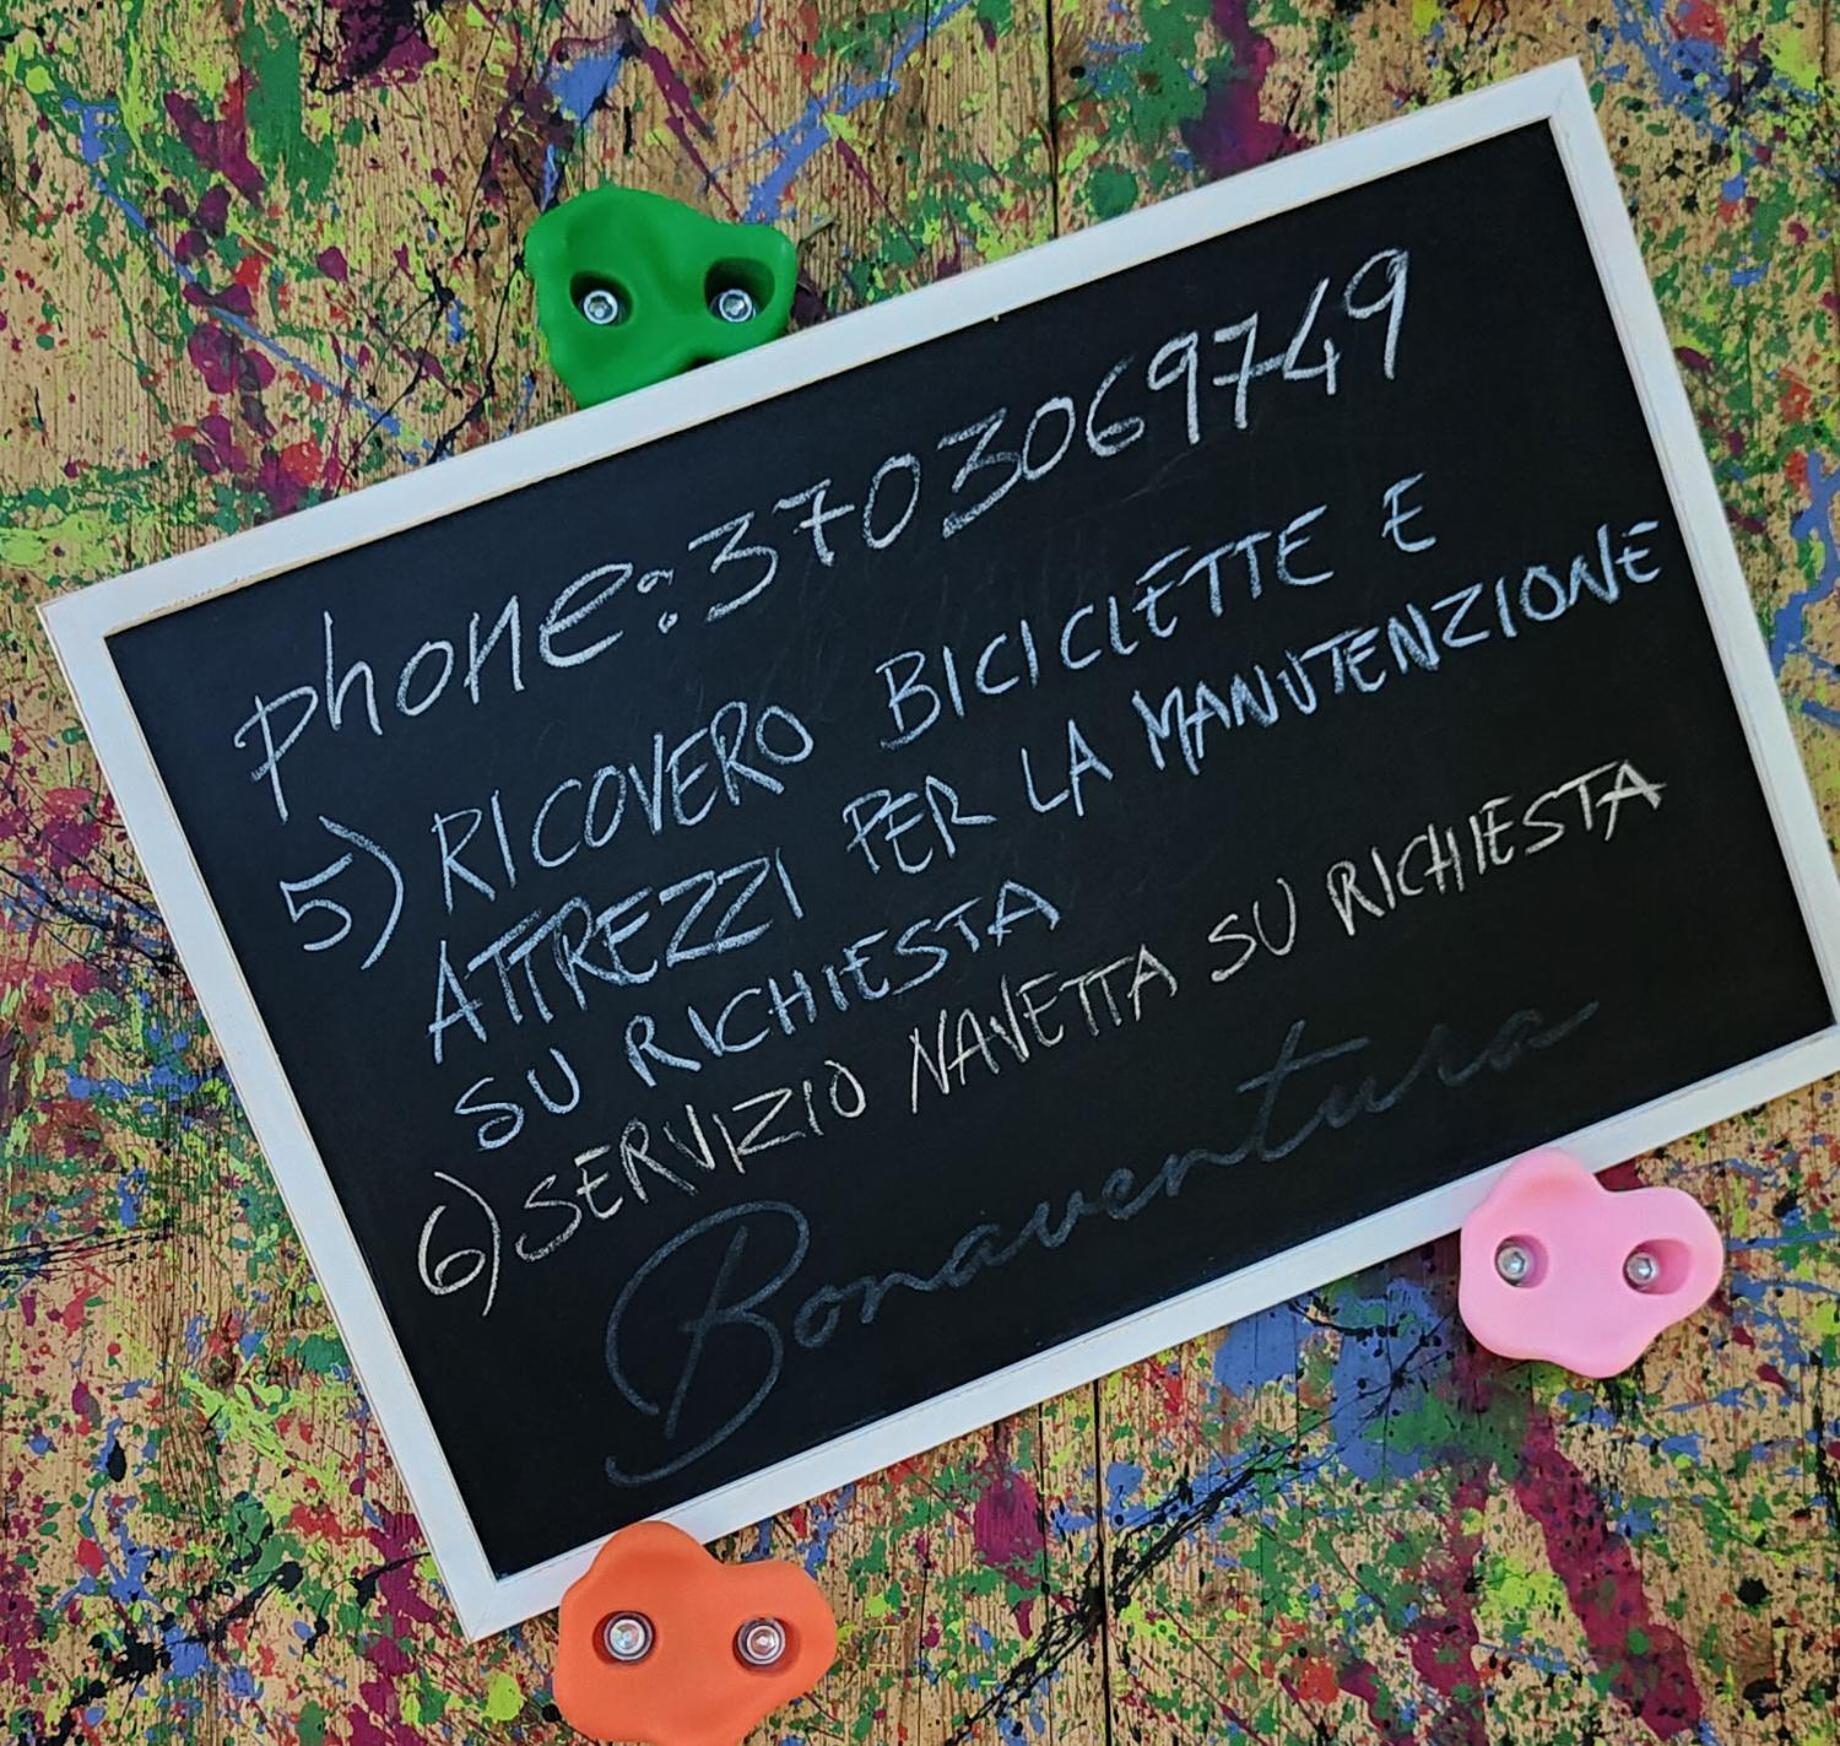 phone: 3703069749
5) RICOVERO BICICLETTE E
ATTREZZI PER LA MANUTENZIONE
SU RICHIESTA
6) SERVIZIO NAVETTA SU RICHIESTA
Bonaventura